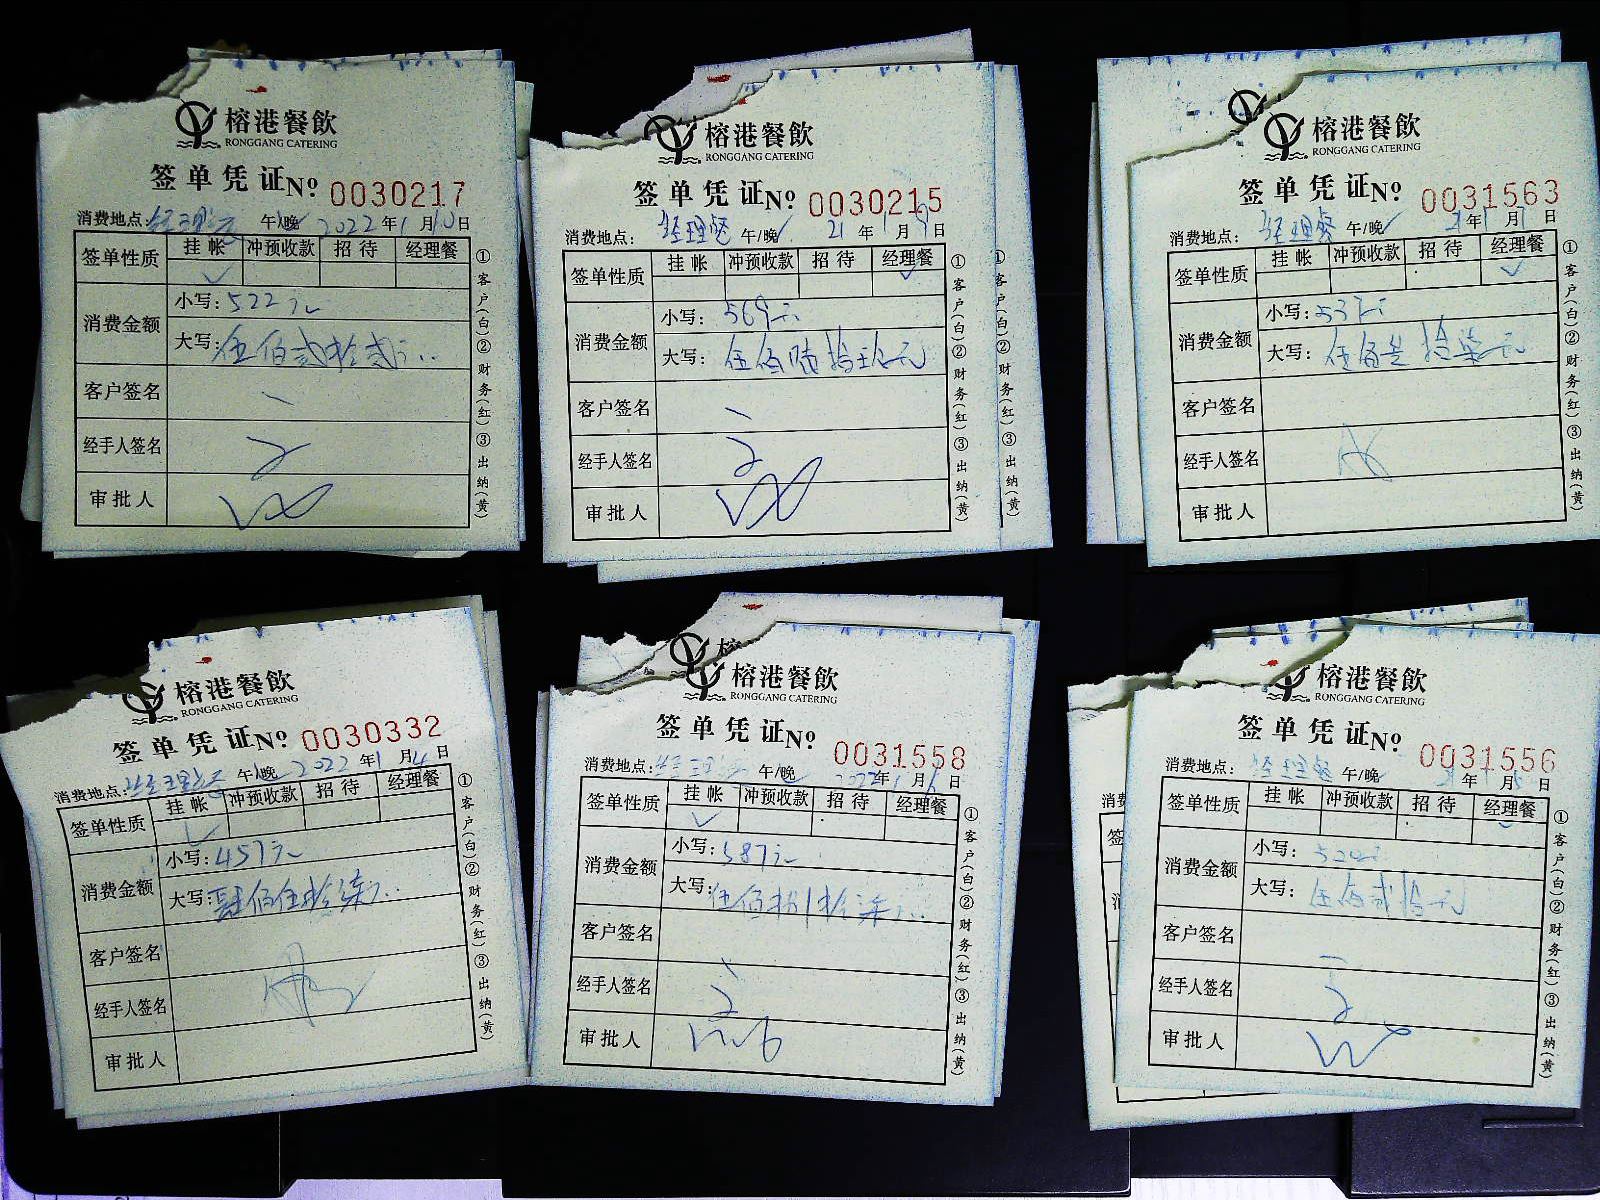 榕港餐飲
RONGGANG CATERING
签单凭证No. 0030217
消费地点: 午/晚 2022年1月10日
签单性质 挂帐 冲预收款 招待 经理餐
消费金额
小写: 522元
大写: 伍佰贰拾贰元
客户签名
经手人签名
审批人
①客户(白)②财务(红)③出纳(黄)
榕港餐飲
RONGGANG CATERING
签单凭证No. 0030215
消费地点: 经理餐 午/晚 21年1月9日
签单性质 挂帐 冲预收款 招待 经理餐
消费金额
小写: 569元
大写: 伍佰陆拾玖元
客户签名
经手人签名
审批人
①客户(白)②财务(红)③出纳(黄)
①客户(白)②财务(红)③出纳(黄)
榕港餐飲
RONGGANG CATERING
签单凭证No. 0031563
消费地点: 经理餐 午/晚 年 月 日
签单性质 挂帐 冲预收款 招待 经理餐
消费金额
小写: 537元
大写: 伍佰叁拾柒元
客户签名
经手人签名
审批人
①客户(白)②财务(红)③出纳(黄)
榕港餐飲
RONGGANG CATERING
签单凭证No. 0030332
消费地点: 午/晚 2022年1月4日
签单性质 挂帐 冲预收款 招待 经理餐
消费金额
小写: 457元
大写: 肆佰伍拾柒元
客户签名
经手人签名
审批人
①客户(白)②财务(红)③出纳(黄)
榕
榕港餐飲
RONGGANG CATERING
签单凭证No. 0031558
消费地点: 午/晚 2022年1月6日
签单性质 挂帐 冲预收款 招待 经理餐
消费金额
小写: 587元
大写: 伍佰捌拾柒元
客户签名
经手人签名
审批人
①客户(白)②财务(红)③出纳(黄)
榕港餐飲
RONGGANG CATERING
签单凭证No. 0031556
消费地点: 经理餐 午/晚 年 月5日
签单性质 挂帐 冲预收款 招待 经理餐
消费金额
小写: 520元
大写: 伍佰贰拾元
客户签名
经手人签名
审批人
①客户(白)②财务(红)③出纳(黄)